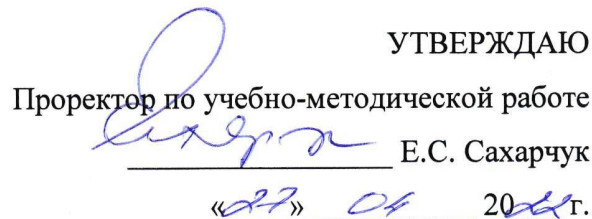 УТВЕРЖДАЮ
Проректор по учебно-методической работе
Е.С. Сахарчук
«27» 04 2022г.